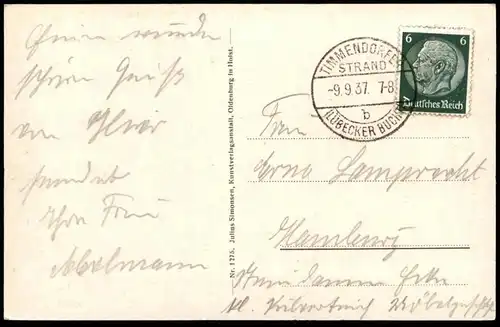 Einen wunder
schönen Gruß
von Hier
sendet
Ihre Frau
Abelmann
Nr. 1275. Julius Simonsen, Kunstverlagsanstalt, Oldenburg in Holst.
TIMMENDORFER
STRAND
-9.9.37. 7-8
b
(LÜBECKER BUCHT)
6 6
Deutsches Reich
Frau
Erna Lamprecht
Hamburg
Ecke